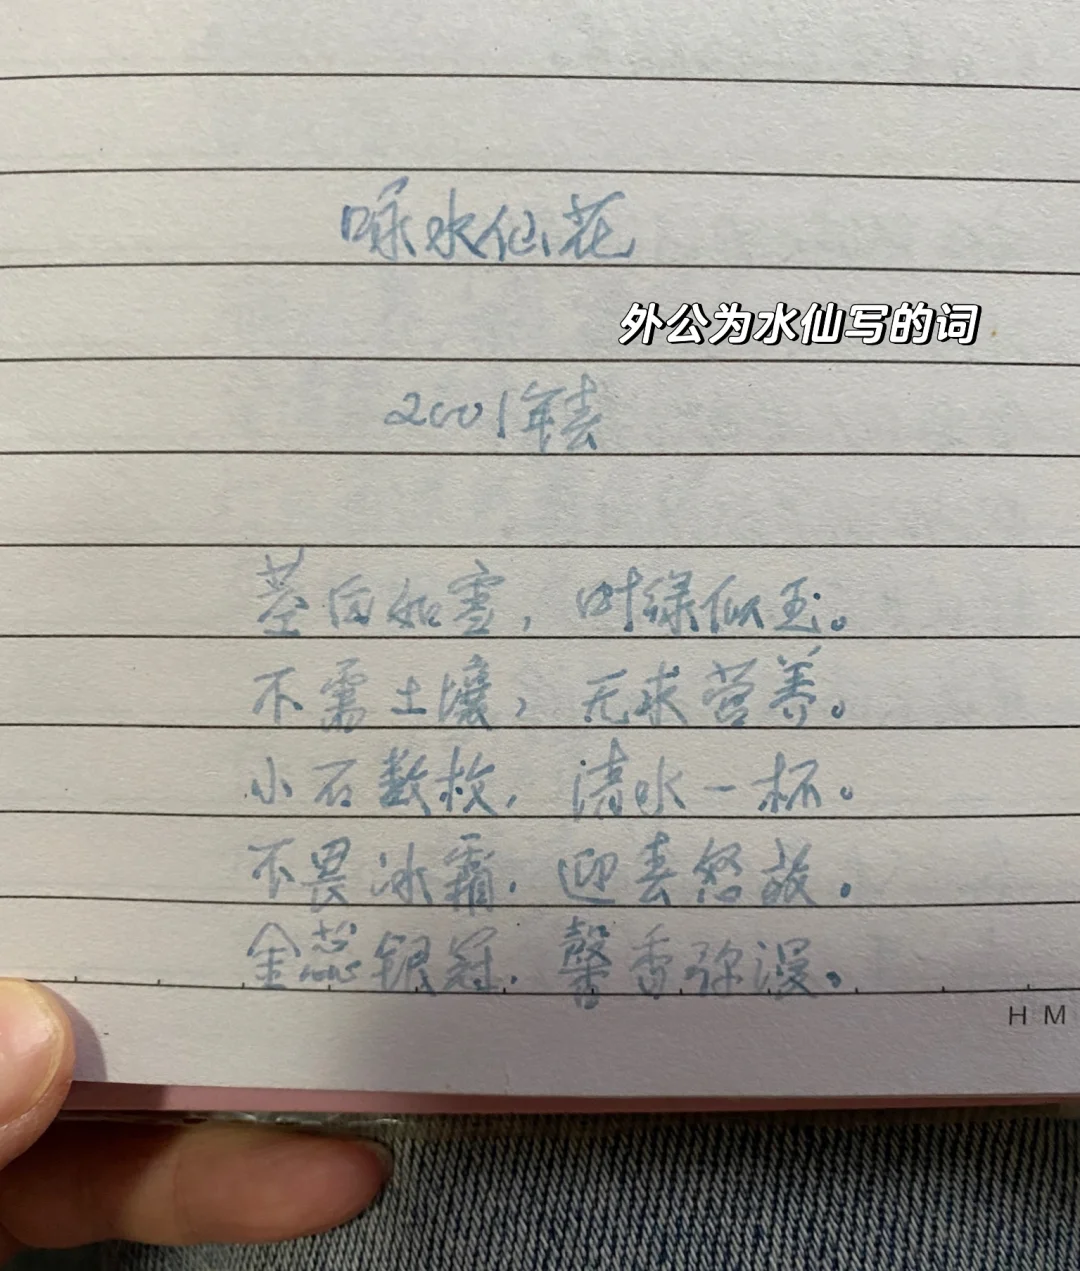 咏水仙花
外公为水仙写的词
2001年春
茎白如雪，叶绿似玉。
不需土壤，无求营养。
小石数枚，清水一杯。
不畏冰霜，迎春怒放。
金蕊银冠，馨香弥漫。
H M